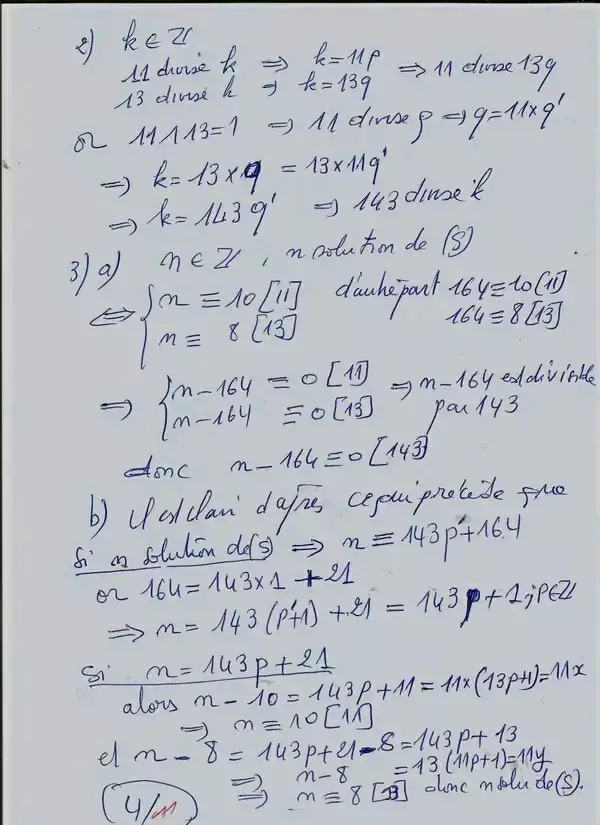 2) k ∈ ℤ
11 divise k ⇒ k = 11p
13 divise k ⇒ k = 13q ⇒ 11 divise 13q
or 11 ∧ 13 = 1 ⇒ 11 divise q ⇒ q = 11 × q'
⇒ k = 13 × q = 13 × 11q'
⇒ k = 143 q' ⇒ 143 divise k
3) a) n ∈ ℤ, n solution de (S)
⇔ { n ≡ 10 [11] d'autre part 164 ≡ 10 [11]
n ≡ 8 [13] 164 ≡ 8 [13]
⇒ { n - 164 ≡ 0 [11] ⇒ n - 164 est divisible
n - 164 ≡ 0 [13] par 143
donc n - 164 ≡ 0 [143]
b) il est clair d'après ce qui précède que
Si n solution de (S) ⇒ n = 143p' + 164
or 164 = 143 × 1 + 21
⇒ n = 143 (p'+1) + 21 = 143 p + 2; p ∈ ℤ
Si n = 143p + 21
alors n - 10 = 143p + 11 = 11 × (13p+1) = 11x
⇒ n ≡ 10 [11]
et n - 8 = 143p + 21 - 8 = 143p + 13
⇒ n - 8 = 13 (11p+1) = 11y
⇒ n ≡ 8 [13] donc n solu de (S).
4/11